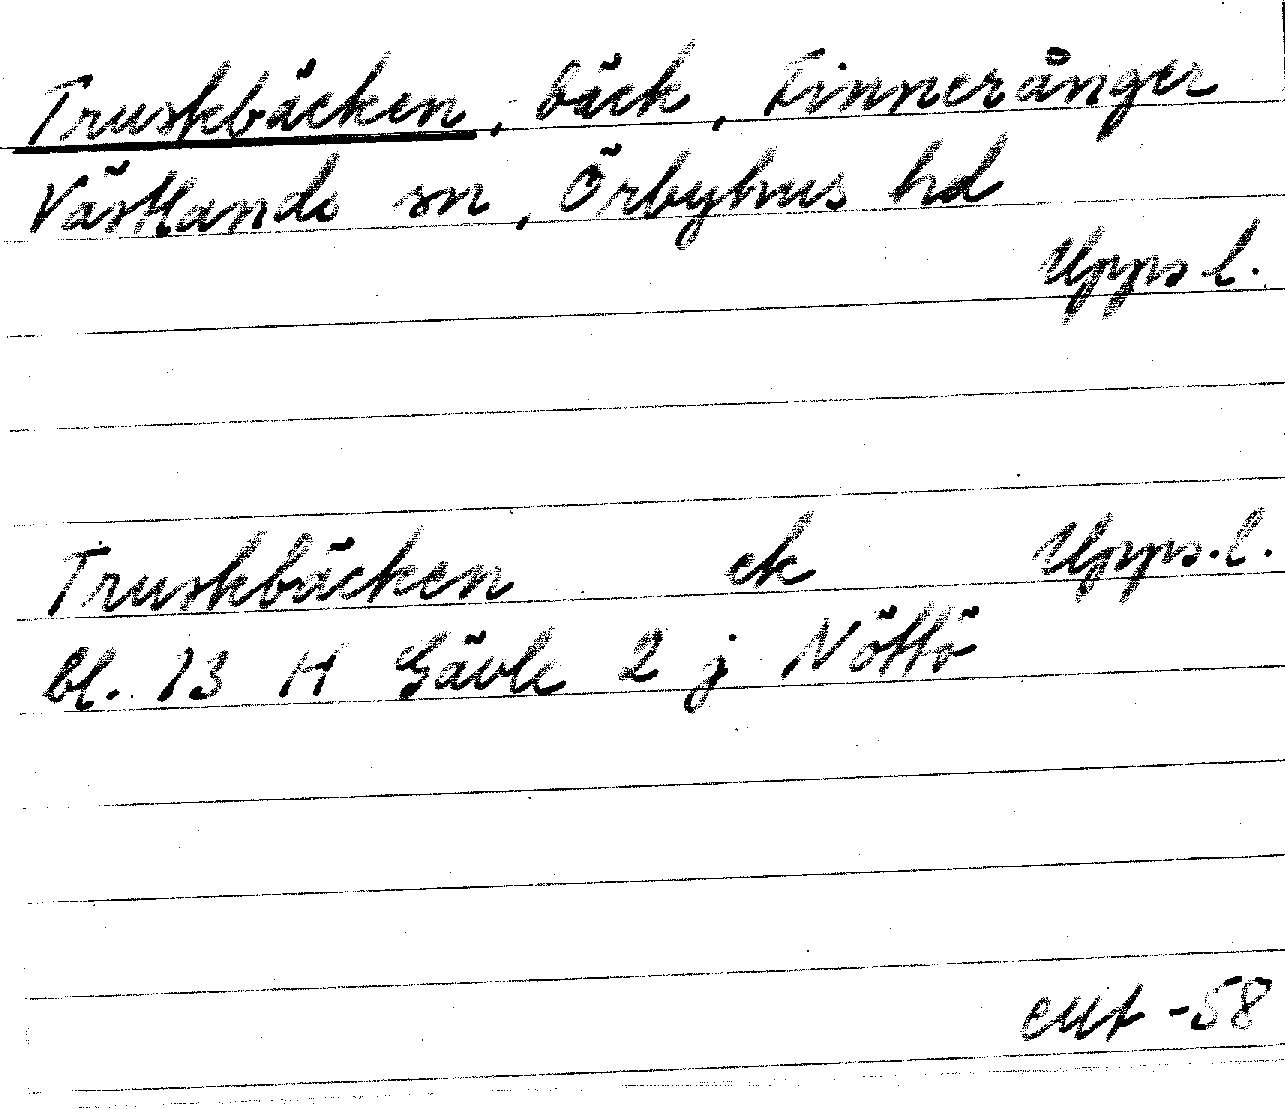 Truskbäcken, bäck, Finneränger
Västlands sn, Örbyhus hd
Upps l.
Truskbäcken ek Upps. l.
bl. 13 H Gävle 2 j Nöttö
-58